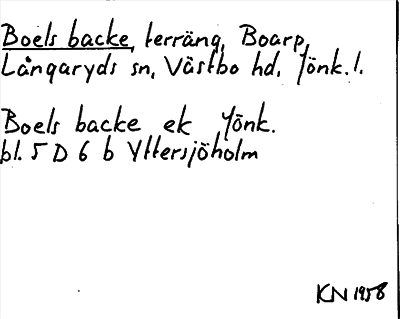 Boels backe, terräng, Boarp,
Långaryds sn, Västbo hd, Jönk. l.
Boels backe ek Jönk.
bl. 5 D 6 b Yttersjöholm
KN 1958